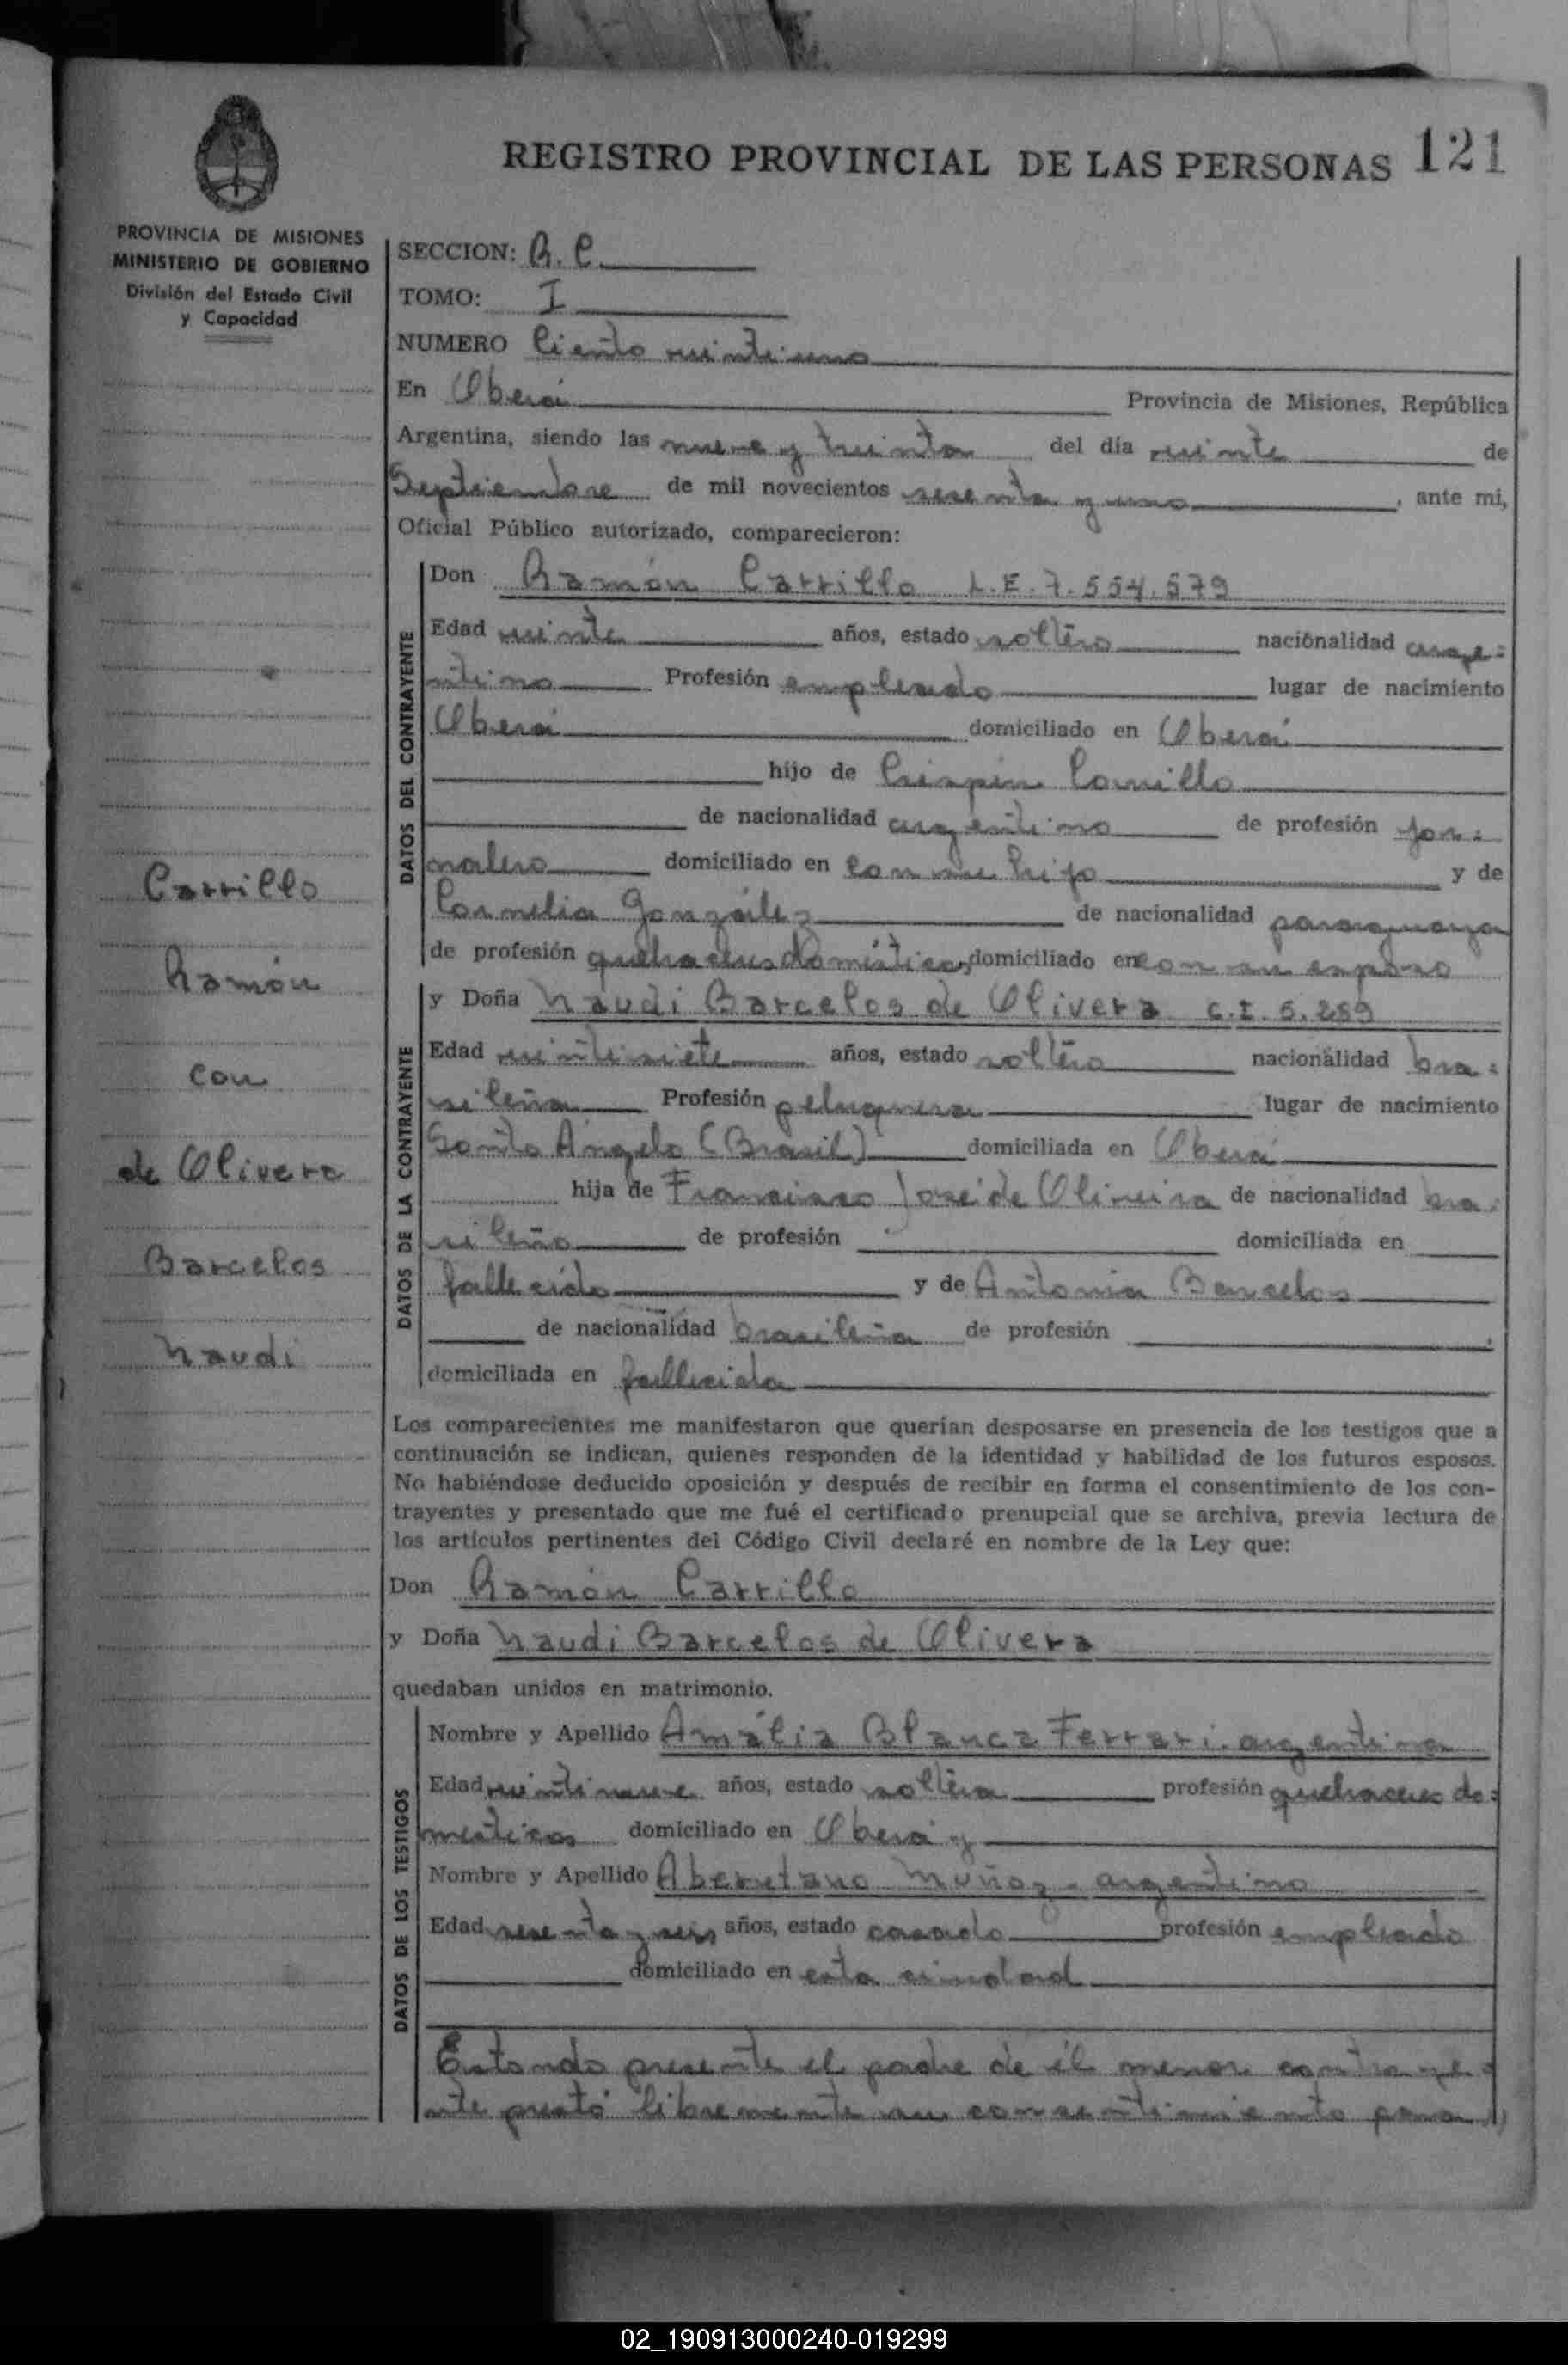 REGISTRO PROVINCIAL DE LAS PERSONAS 121
PROVINCIA DE MISIONES
MINISTERIO DE GOBIERNO
División del Estado Civil
y Capacidad
SECCION: R. C.
TOMO: I
NUMERO Ciento veintiuno
En Oberá Provincia de Misiones, República
Argentina, siendo las nueve y treinta del día veinte de
Septiembre de mil novecientos sesenta y uno, ante mi,
Oficial Público autorizado, comparecieron:
DATOS DEL CONTRAYENTE
Don Ramón Carrillo L.E. 7.554.579
Edad veinte años, estado soltero nacionalidad arge=
ntino Profesión empleado lugar de nacimiento
Oberá domiciliado en Oberá
hijo de Crispín Carrillo
de nacionalidad argentino de profesión jor=
nalero domiciliado en con su hijo y de
Cornelia González de nacionalidad paraguaya
de profesión quehaceres domésticos domiciliado en con su esposo
DATOS DE LA CONTRAYENTE
y Doña Naudi Barcelos de Olivera C.I. 5.259
Edad veintisiete años, estado soltera nacionalidad bra=
sileña Profesión peluquera lugar de nacimiento
Santo Angelo (Brasil) domiciliada en Oberá
hija de Francisco José de Oliveira de nacionalidad bra=
sileño de profesión domiciliada en
fallecido y de Antonia Barcelos
de nacionalidad brasileña de profesión
domiciliada en fallecida
Carrillo
Ramón
con
de Olivera
Barcelos
Naudi
Los comparecientes me manifestaron que querían desposarse en presencia de los testigos que a
continuación se indican, quienes responden de la identidad y habilidad de los futuros esposos.
No habiéndose deducido oposición y después de recibir en forma el consentimiento de los con-
trayentes y presentado que me fué el certificado prenupcial que se archiva, previa lectura de
los artículos pertinentes del Código Civil declaré en nombre de la Ley que:
Don Ramón Carrillo
y Doña Naudi Barcelos de Olivera
quedaban unidos en matrimonio.
DATOS DE LOS TESTIGOS
Nombre y Apellido Amália Blanca Ferrari. argentina
Edad veintinueve años, estado soltera profesión quehaceres do=
mésticos domiciliado en Oberá y
Nombre y Apellido Aberetano Muñoz - argentino
Edad sesenta y seis años, estado casado profesión empleado
domiciliado en esta ciudad
Estando presente el padre de él menor contraye=
nte prestó libremente su consentimiento para
02_190913000240-019299